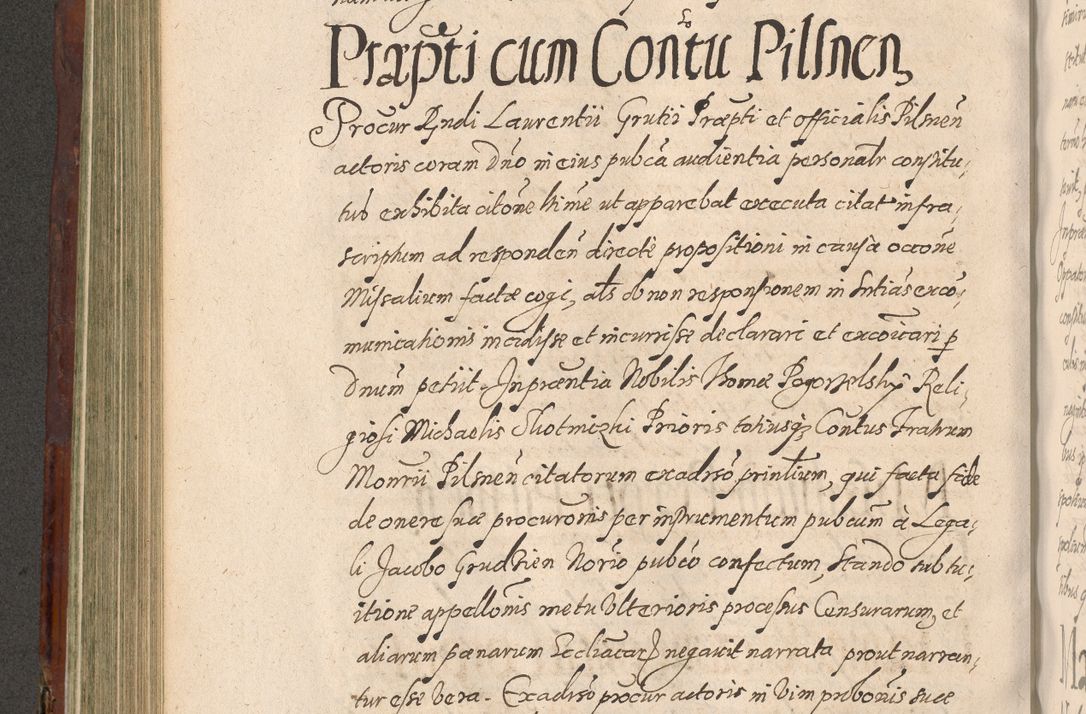 Præp̃ti cum Conṽtu Pilsnen,
Procũr Rṽndi Laurentii Grutii Præp̃ti et officialis Pilsneñ
actoris coram Dñ̃o in eius pub̃ca audientia personalr constitu,
tus exhibita citõne ltime ut apparebat executa citat infra,
scriptum ad respondeñ directè propositioni in causa occõne
Missalium factæ cogi, als ob non responsionem in sntiãs exco,
municationis incidisse et incurrisse declarari et excõicari p
Dnum petiit. In præntia Nobilis Thomæ Pogorzelsky Reli,
giosi Michaelis Slotnicki Prioris totiusq, Contus Fratrum
Monrii Pilsneñ citatorum exadiso printium, qui facta fide
de onere suæ procuronis per instrumentum pubcum à Lega,
li Jacobo Grudzien Norio pubco confectum, stando sub tu,
itione appellonis metu Ulterioris processus Censurarum, et
aliarum pænarum Eccliacar negavit narrata prout narran,
tur esse vera. Exadiso procur actoris in vim probonis suæ